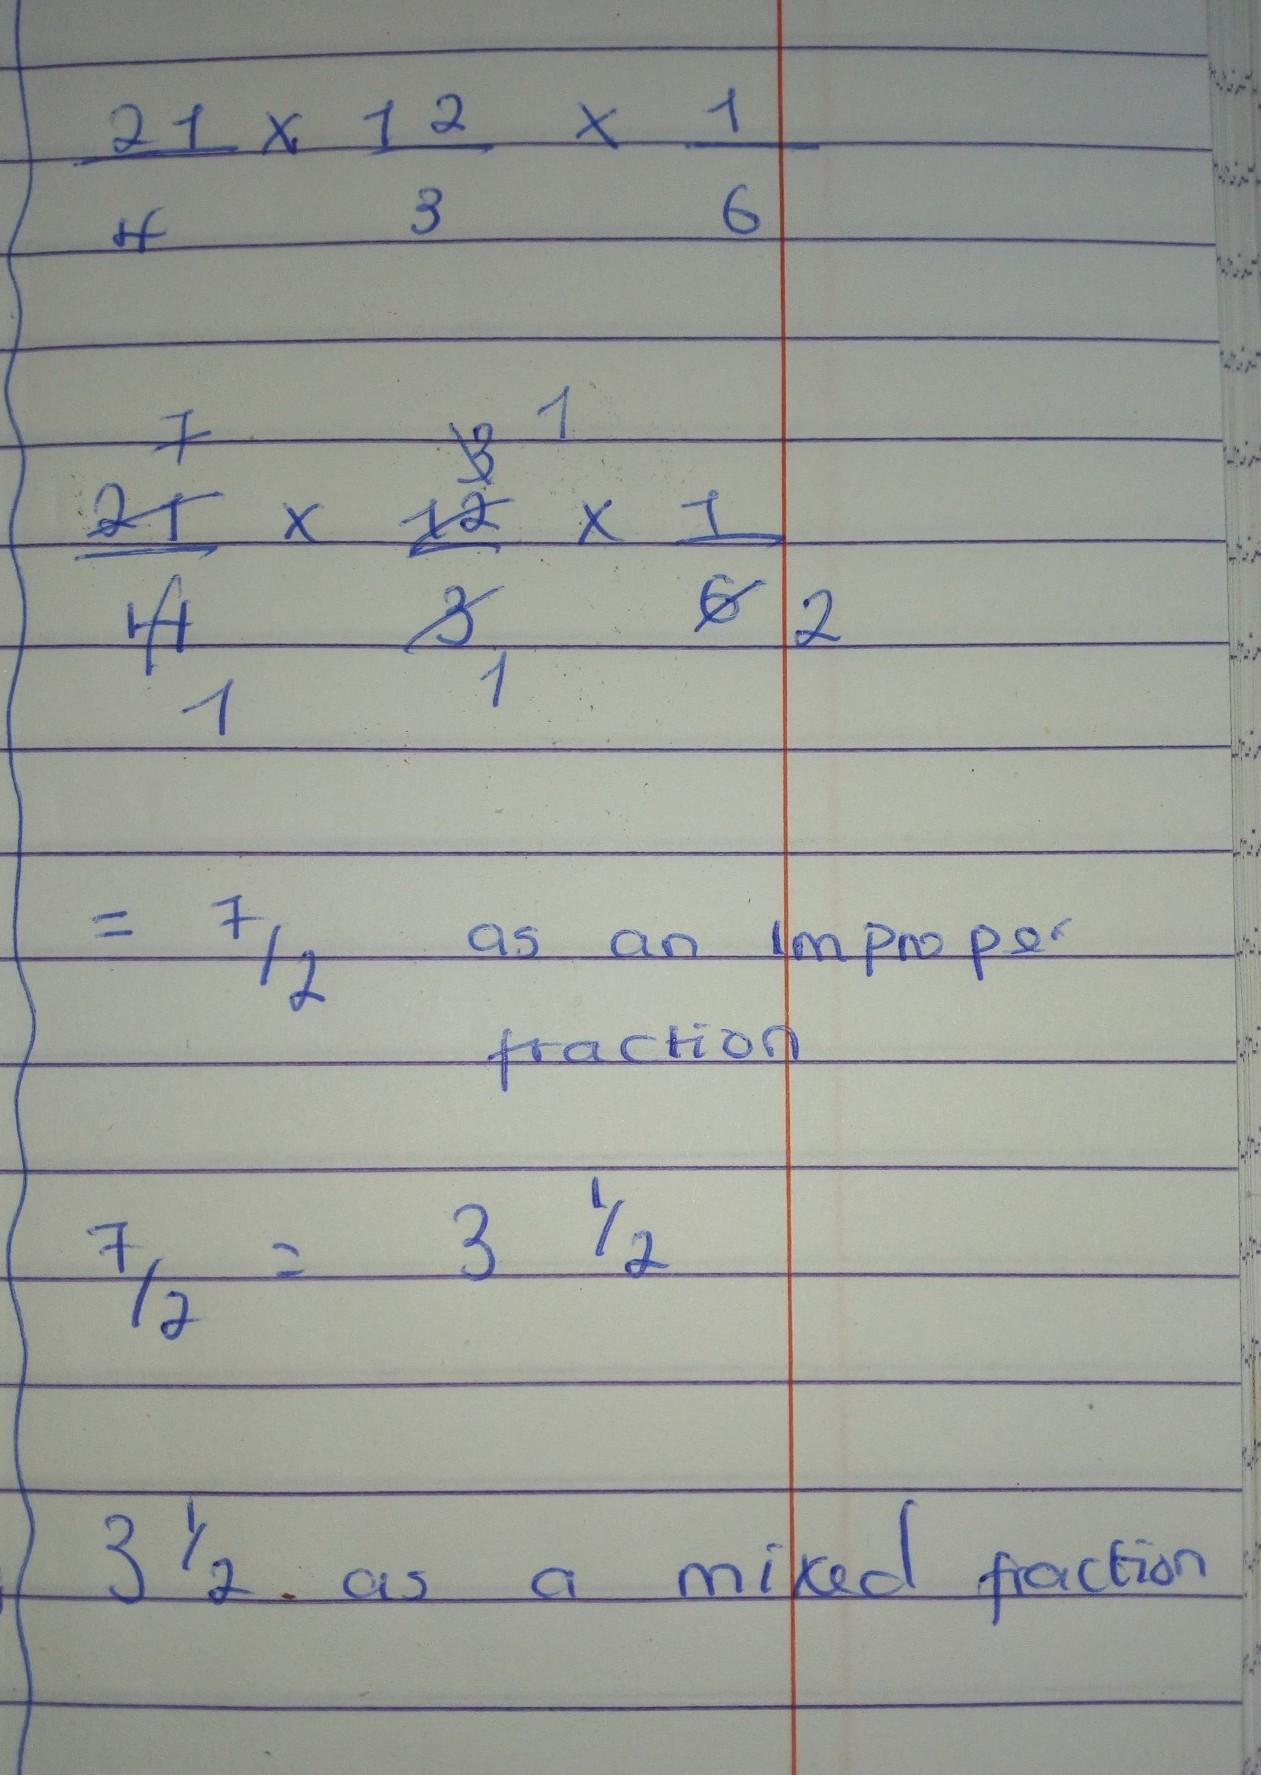 21 x 12 x 1
4 3 6
7 3 1
21 x 12 x 1
4 3 6 2
1 1
= 7/2 as an improper
fraction
7/2 = 3 1/2
3 1/2. as a mixed fraction